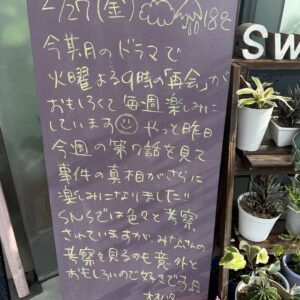 2/27(金) 18℃
今期のドラマで
火曜よる9時の「再会」が
おもしろくて毎週楽しみに
しています やっと昨日
今週の第7話を見て
事件の真相がさらに
楽しみになりました!!
SNSでは色々と考察
されていますが みなさんの
考察を見るのも意外と
おもしろいので好きです
SW